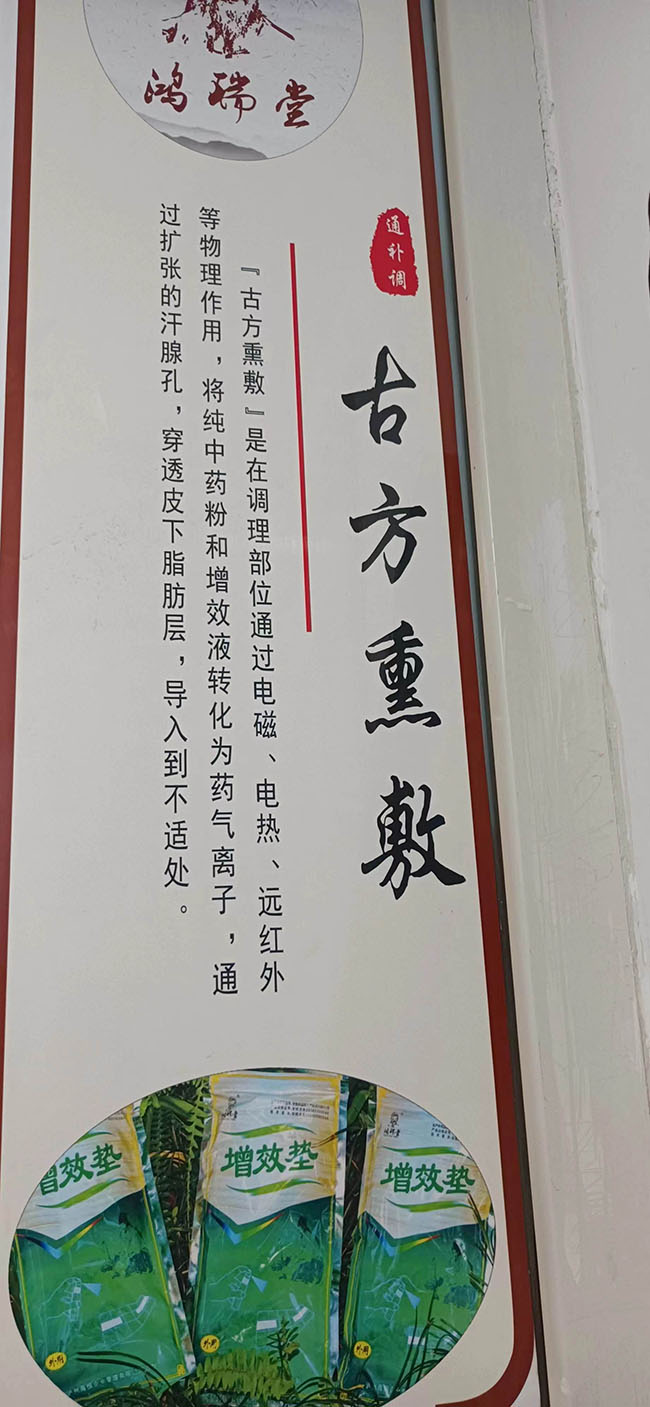 鸿瑞堂
通补调
古方熏敷
『古方熏敷』是在调理部位通过电磁、电热、远红外
等物理作用，将纯中药粉和增效液转化为药气离子，通
过扩张的汗腺孔，穿透皮下脂肪层，导入到不适处。
增效垫
增效垫
增效垫
外用
外用
外用